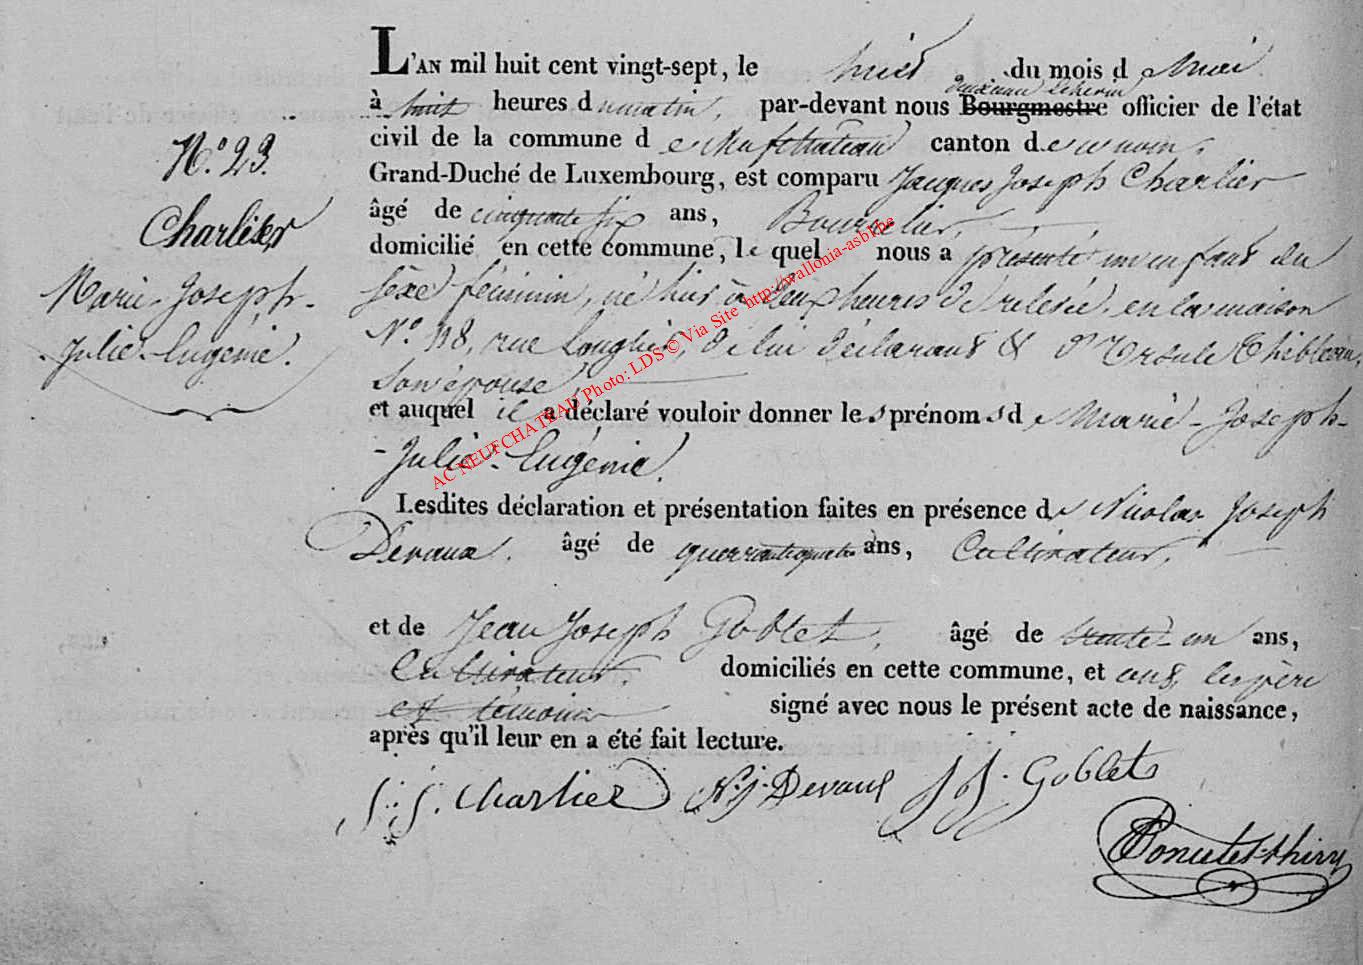 L'AN mil huit cent vingt-sept, le huit du mois de Mai
deuxième échevin
à huit heures du matin, par-devant nous Bourgmestre officier de l'état
civil de la commune de Neufchateau canton de ce nom,
Grand-Duché de Luxembourg, est comparu Jacques Joseph Charlier
âgé de cinquante six ans, Bourrelier,
domicilié en cette commune, le quel nous a présenté un enfant du
sèxe féminin, né hier à deux heures de relevée, en la maison
N.° 118, rue Longlier, de lui déclarant & d'Ursule
son épouse,
et auquel il a déclaré vouloir donner les prénoms de Marie-Joseph-
-Julie-Eugénie.
Lesdites déclaration et présentation faites en présence de Nicolas Joseph
Devaux, âgé de quarante quatre ans, Cultivateur,
et de Jean Joseph Goblet, âgé de trente-un ans,
Cultivateur, domiciliés en cette commune, et ont les père
et témoins signé avec nous le présent acte de naissance,
après qu'il leur en a été fait lecture.
J. J. Charlier N. J. Devaux J J. Goblet
N.° 23.
Charlier
Marie-Joseph-
-Julie-Eugénie.
AC NEUFCHATEAU Photo: LDS © Via Site http://wallonia-asbl.be